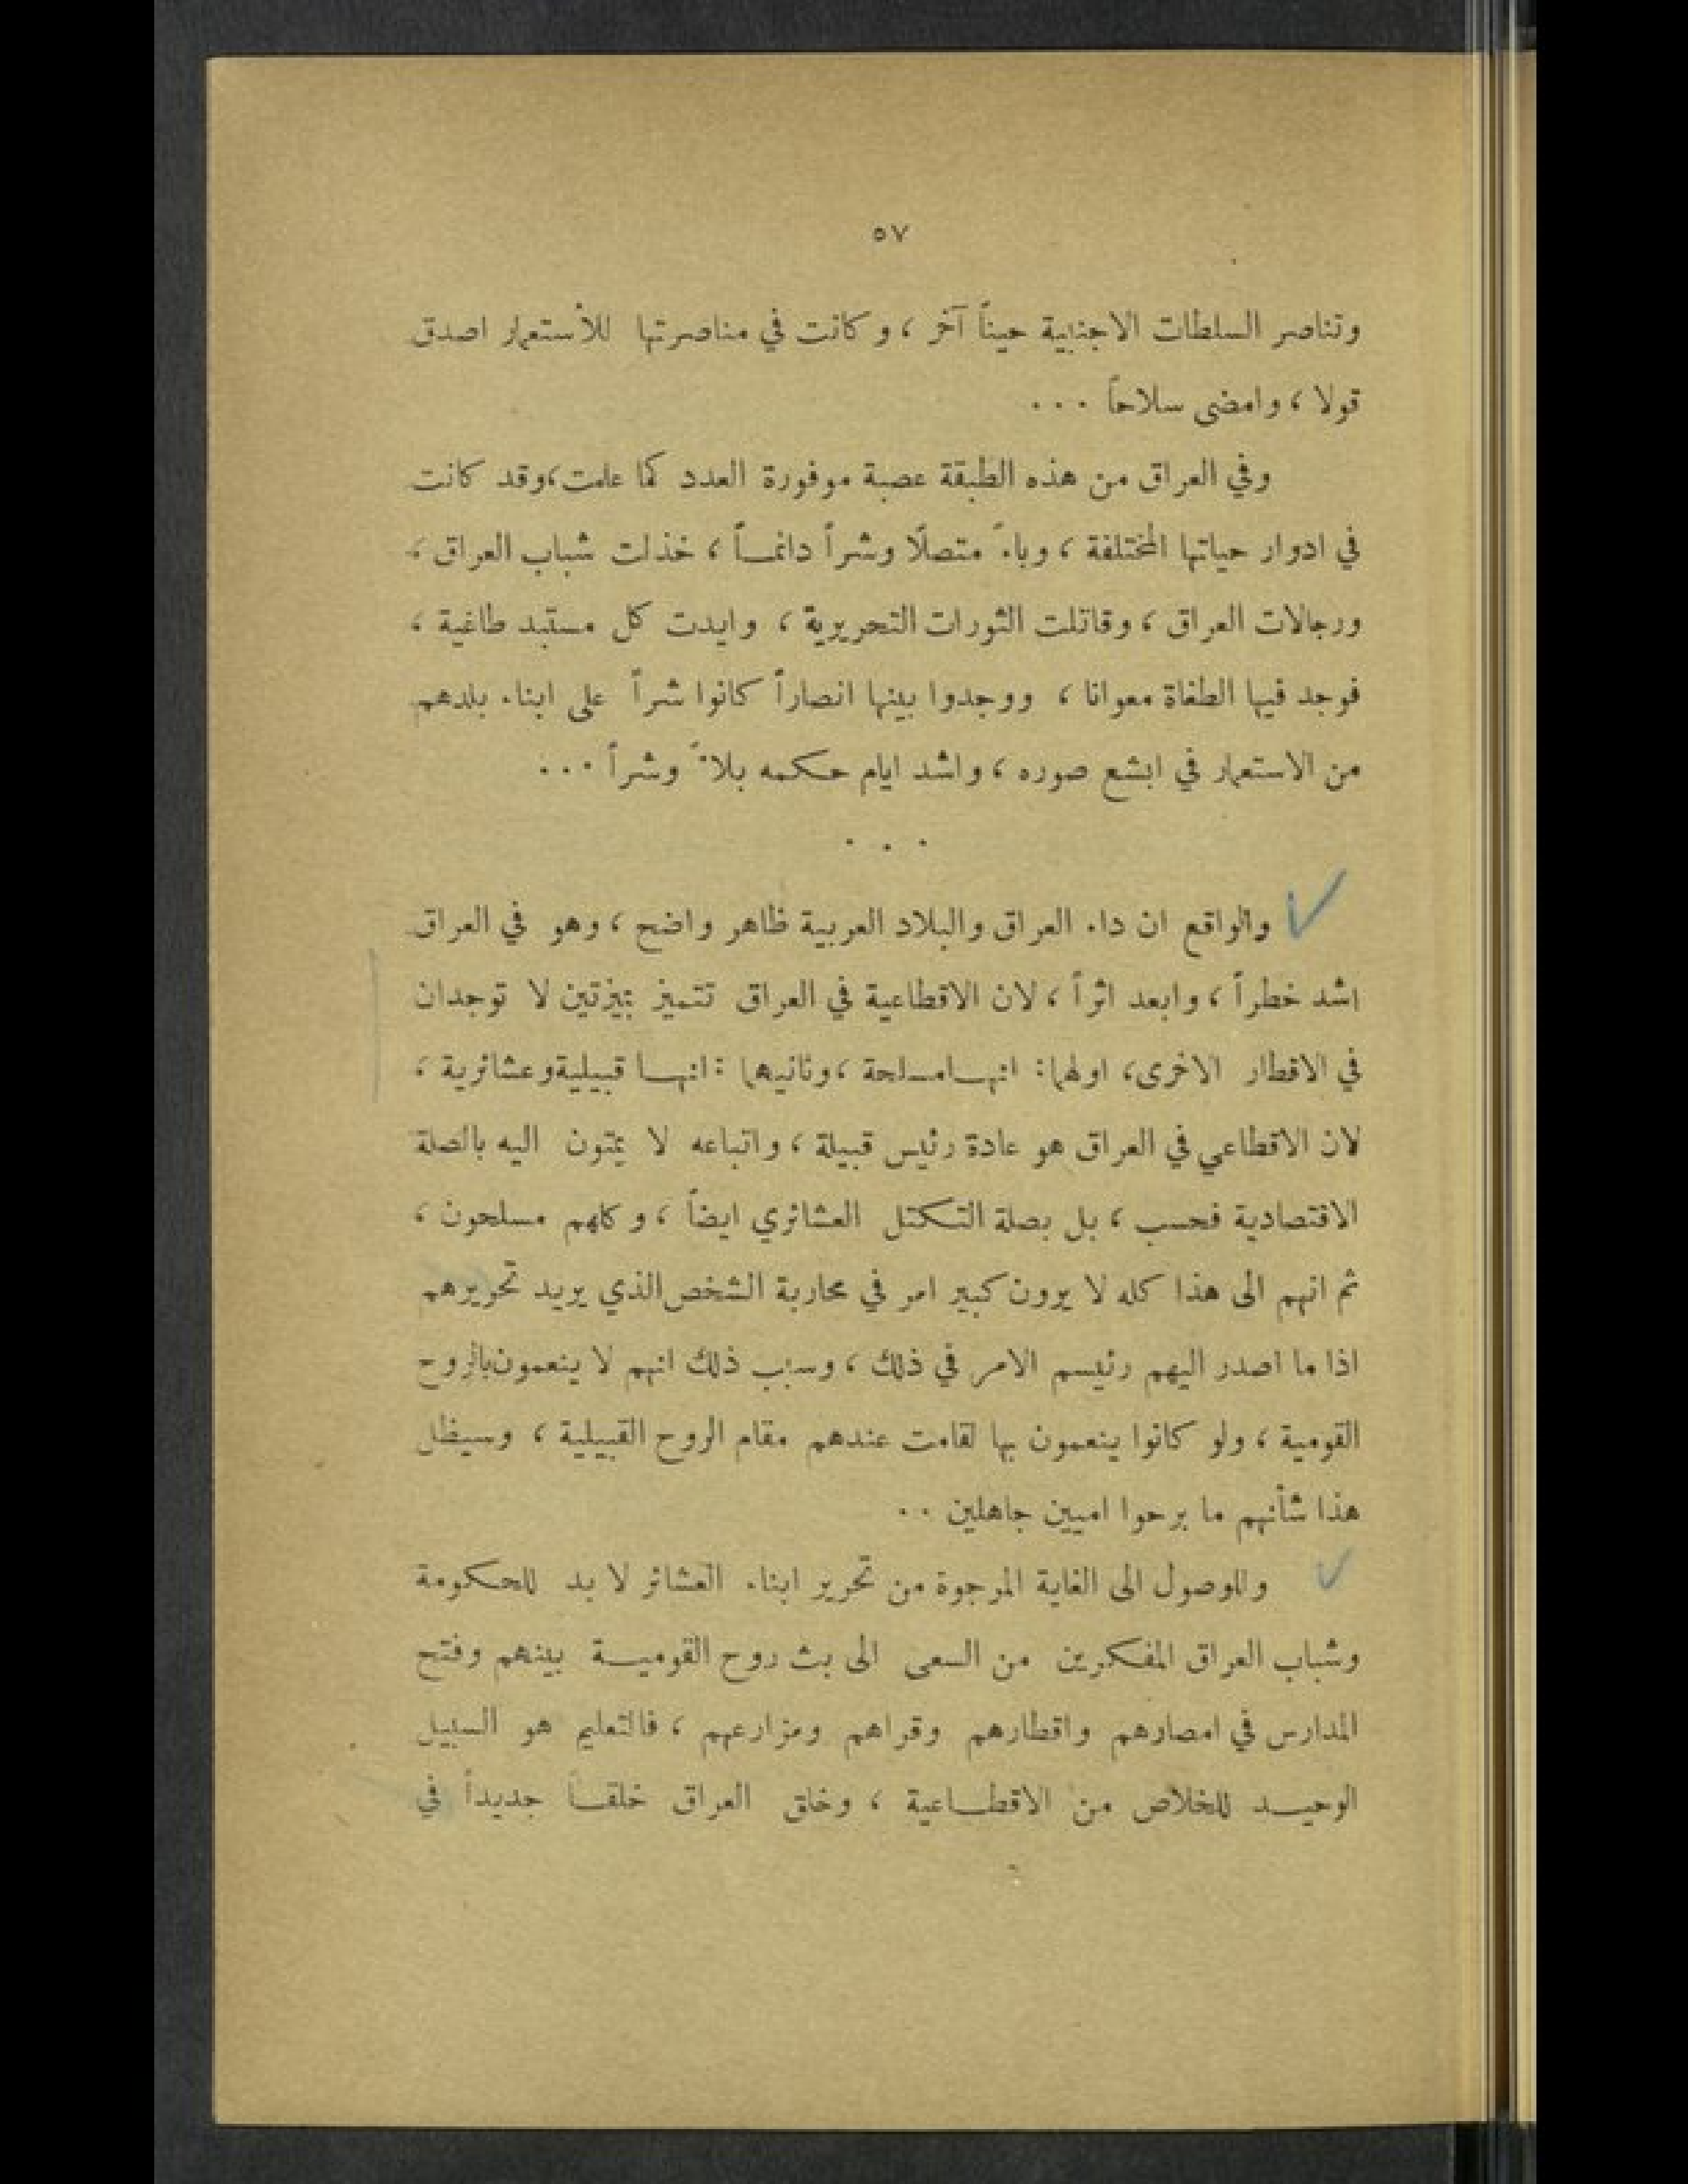 ٥٧
وتناصر السلطات الاجنبية حيناً آخر ، وكانت في مناصرتها للأستعمار اصدق
قولا ، وامضى سلاحاً ...
وفي العراق من هذه الطبقة عصبة موفورة العدد كما علمت ، وقد كانت
في ادوار حياتها المختلفة ، وباءً متصلًا وشراً دائمـاً ، خذلت شباب العراق ،
ورجالات العراق ، وقاتلت الثورات التحريرية ، وايدت كل مستبد طاغية ،
فوجد فيها الطغاة معوانا ، ووجدوا بينها انصاراً كانوا شراً على ابناء بلدهم
من الاستعمار في ابشع صوره ، واشد ايام حكمه بلاءً وشراً ...
. . .
والواقع ان داء العراق والبلاد العربية ظاهر واضح ، وهو في العراق
اشد خطراً ، وابعد اثراً ، لان الاقطاعية في العراق تتميز بميزتين لا توجدان
في الاقطار الاخرى ، اولهما : انهـا مسلحة ، وثانيهما : انهـا قبيلية وعشائرية ،
لان الاقطاعي في العراق هو عادة رئيس قبيلة ، واتباعه لا يمتون اليه بالصلة
الاقتصادية فحسب ، بل بصلة التكتل العشائري ايضاً ، وكلهم مسلحون ،
ثم انهم الى هذا كله لا يرون كبير امر في محاربة الشخص الذي يريد تحريرهم
اذا ما اصدر اليهم رئيسم الامر في ذلك ، وسبب ذلك انهم لا ينعمون بالروح
القومية ، ولو كانوا ينعمون بها لقامت عندهم مقام الروح القبيلية ، وسيظل
هذا شأنهم ما برحوا اميين جاهلين ..
وللوصول الى الغاية المرجوة من تحرير ابناء العشائر لا بد للحكومة
وشباب العراق المفكرين من السعى الى بث روح القوميـة بينهم وفتح
المدارس في امصارهم واقطارهم وقراهم ومزارعهم ، فالتعليم هو السبيل
الوحيـد للخلاص من الاقطـاعية ، وخلق العراق خلقـاً جديداً في